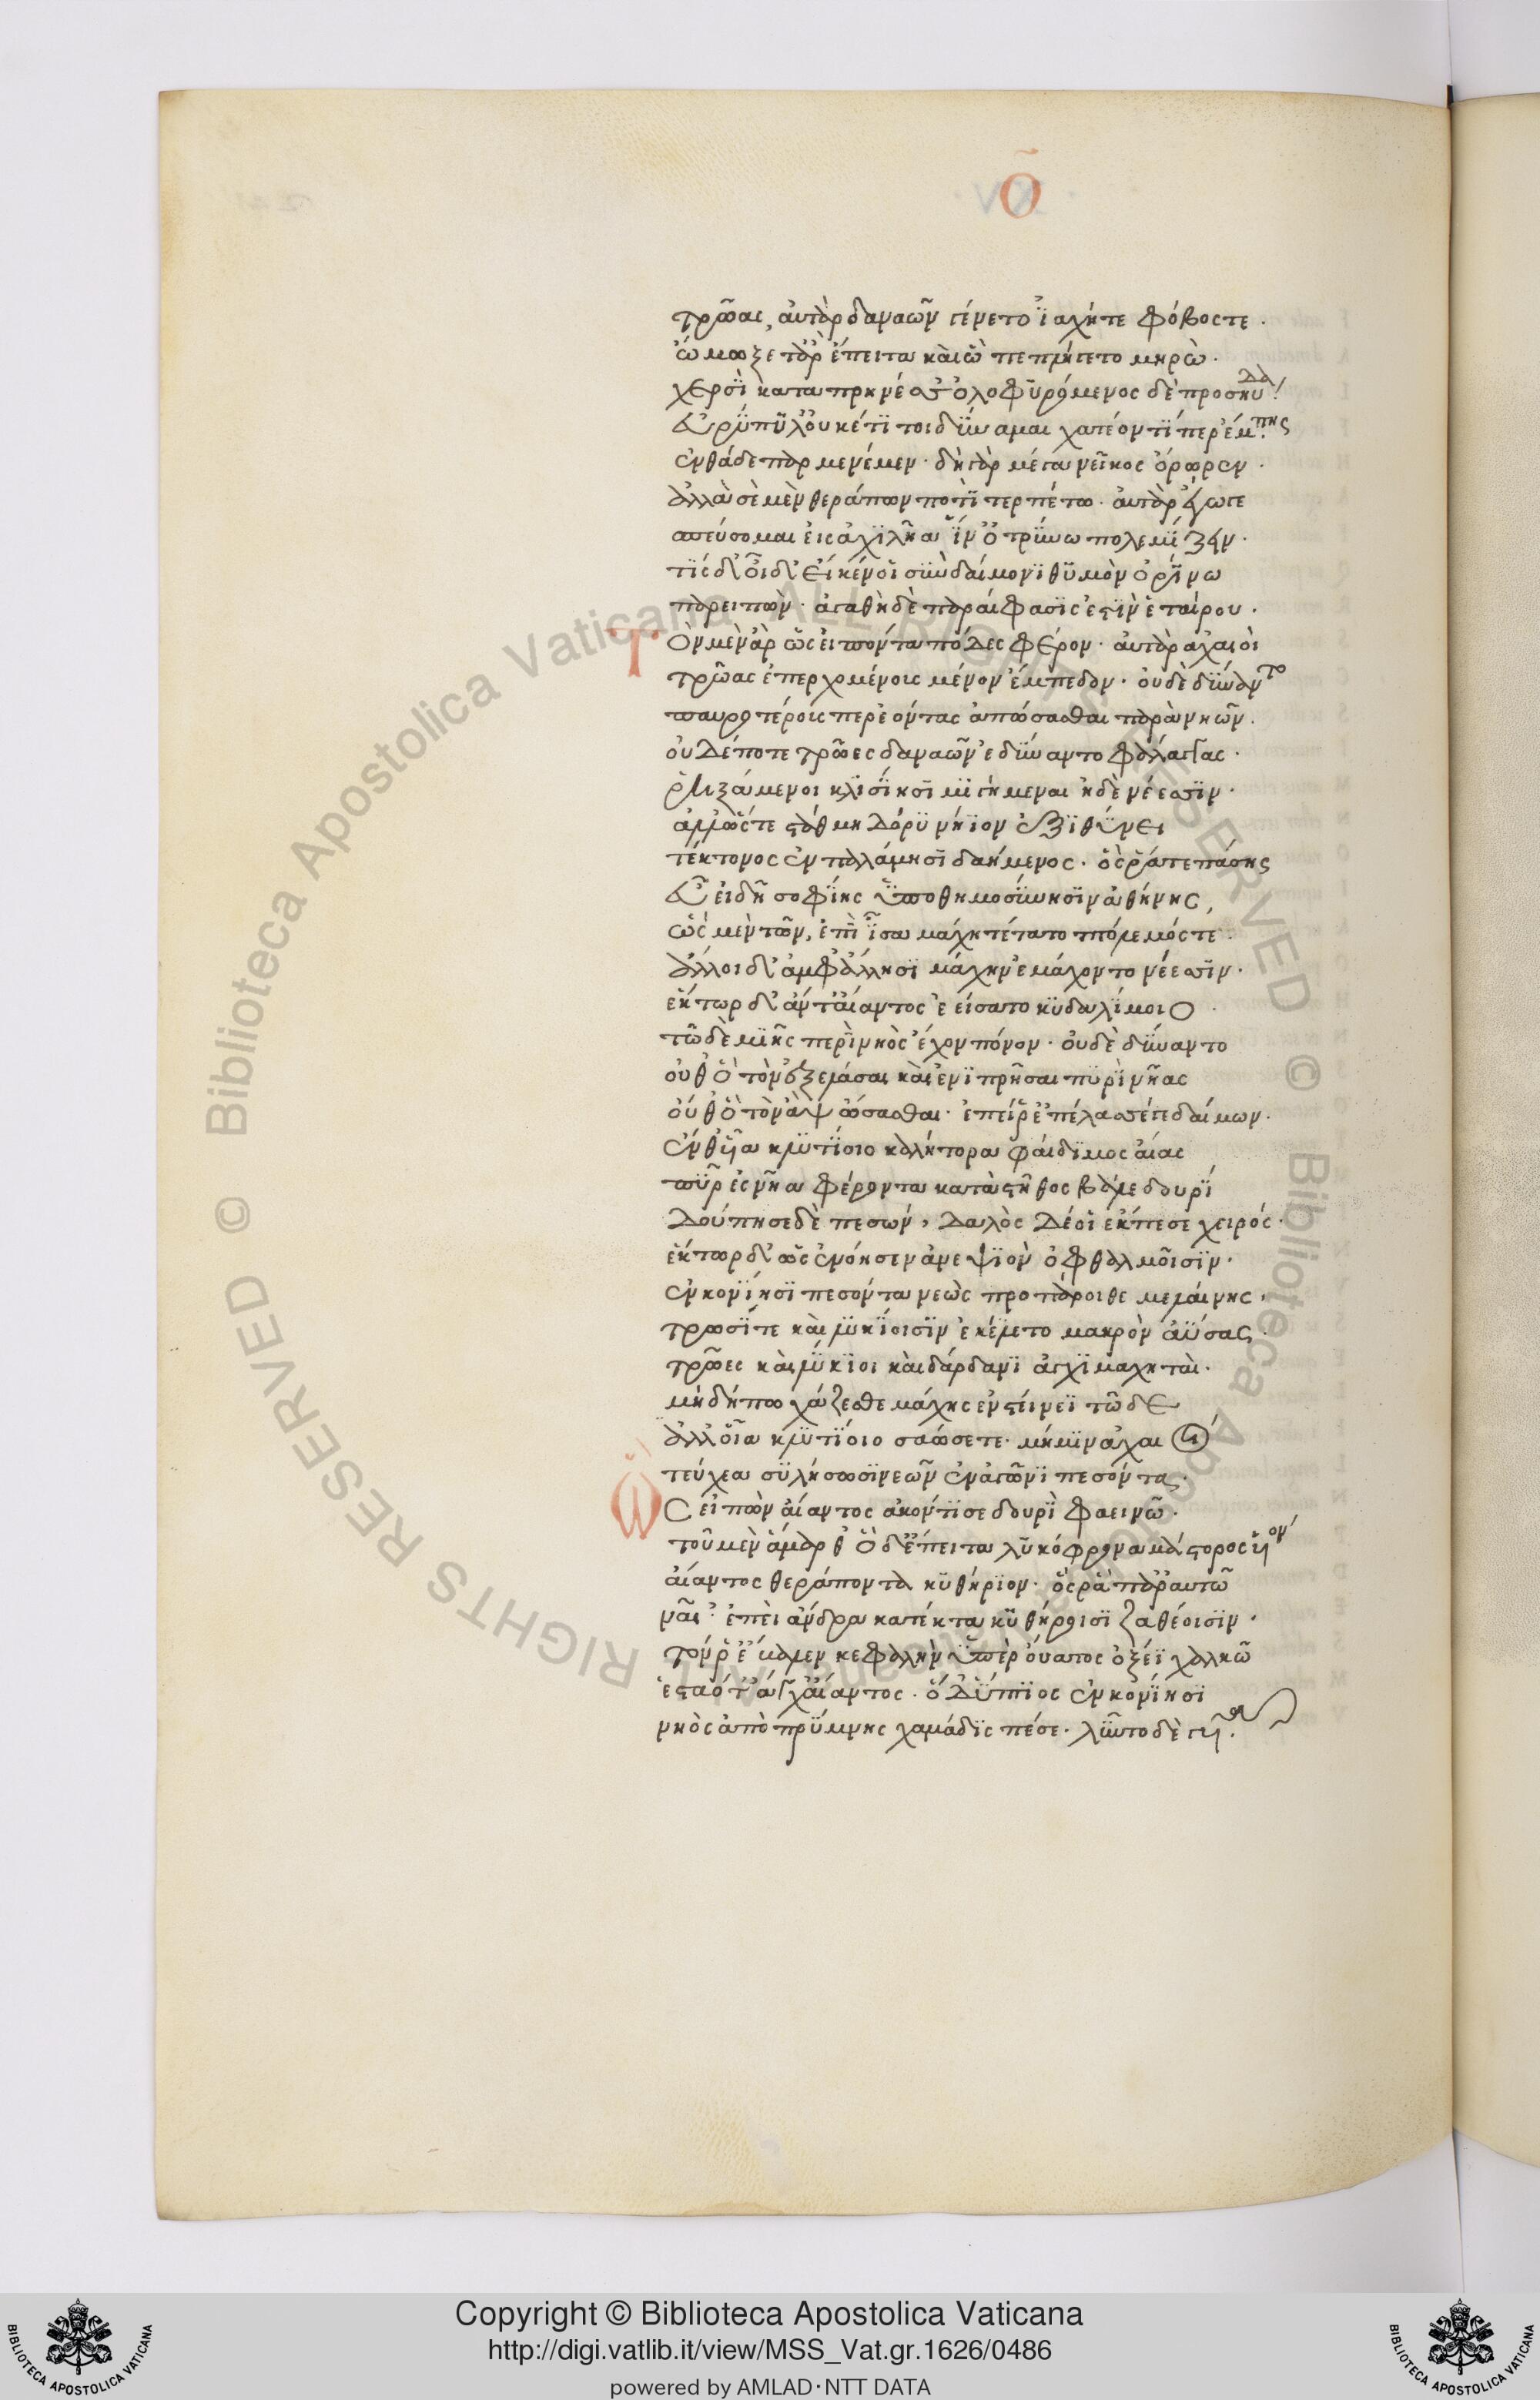 Ο
τρῶας, ἀυτὰρ δαναῶν γένετο ἰαχήτε φόβοςτε.
ὤμωξέ τ᾽ ἂρ ἔπειτα καὶ ὣ πεπλήγετο μηρὼ.
χερσὶ καταπρηνέσσ᾽ ὀλοφυρόμενος δὲ προσηύδα
Εὐρύπυλ᾽ οὐκέτι τοι δύναμαι χατέοντί περ ἔμπης
ἐνθάδε παρμενέμεν. δὴ γὰρ μέγα νεῖκος ὄρωρεν.
ἀλλὰ σὲ μὲν θεράπων ποτιτερπέτω. ἀυτὰρ ἔγωγε
σπεύσομαι ἐις ἀχιλῆα ἵν᾽ ὀτρύνω πολεμίζειν.
τίς δ᾽ οἶδ᾽ ἐί κέν οἱ σὺν δαίμονι θυμὸν ὀρίνω
παρειπών. ἀγαθὴ δὲ παραίφασίς ἐστιν ἑταίρου.
Τὸν μὲν ἂρ ὣς ἐιπόντα πόδες φέρον. ἀυτὰρ ἀχαιοὶ
τρῶας ἐπερχομένους μένον ἔμπεδον. ὀυδὲ δύναντο
παυροτέρους περ ἐόντας ἀπώσασθαι παρὰ νηῶν.
ὀυδέ ποτε τρῶες δαναῶν ἐδύναντο φάλαγγας.
ῥηξάμενοι κλισίησι μιγήμεναι ἠδὲ νέεσσιν.
ἀλλ᾽ ὥστε στάθμη δόρυ νήϊον ἐξιθύνει
τέκτονος ἐν παλάμησι δαήμονος. ὅς ῥά τε πάσης
εὖ ἐιδῆ σοφίης ὑποθημοσύνησιν ἀθήνης,
ὣς μὲν τῶν, ἐπὶ ἶσα μάχη τέτατο πόλεμός τε.
ἄλλοι δ᾽ ἀμφ᾽ ἄλλησι μάχην ἐμάχοντο νέεσσιν.
ἕκτωρ δ᾽ ἄντ᾽ ἄιαντος ἐείσατο κυδαλίμοιο.
τὼ δὲ μιῆς περὶ νηὸς ἔχον πόνον. ὀυδὲ δύναντο
ὀύθ᾽ ὃ τὸν ἐξελάσαι καὶ ἐνιπρῆσαι πυρὶ νῆας
ὀύθ᾽ ὃ τὸν ἂψ ὤσασθαι. ἐπεί ῥ᾽ ἐπέλασσέ γε δαίμων.
ἔνθ᾽ υἷα κλυτίοιο καλήτορα φαίδιμος ἄιας
πῦρ ἐς νῆα φέροντα κατὰ στῆθος βάλε δουρί
δούπησε δὲ πεσών, δαλὸς δέ οἱ ἔκπεσε χειρός.
ἕκτωρ δ᾽ ὡς ἐνόησεν ἀνεψιὸν ὀφθαλμοῖσιν.
ἐν κονίησι πεσόντα νεὼς προπάροιθε μελαίνης,
τρωσί τε καὶ λυκίοισιν ἐκέκλετο μακρὸν ἀύσας.
τρῶες καὶ λύκιοι καὶ δάρδανοι ἀγχιμαχηταὶ.
μὴ δή πω χάζεσθε μάχης ἐν στείνεϊ τῶδε
ἀλλ᾽ υἷα κλυτίοιο σαώσετε. μή μιν ἀχαιοὶ
τεύχεα συλήσωσι νεῶν ἐν ἀγῶνι πεσόντα.
Ὣς ἐιπὼν ἄιαντος ἀκόντισε δουρὶ φαεινῶ.
τοῦ μὲν ἅμαρθ᾽ ὃ δ᾽ ἔπειτα λυκόφρονα μάστορος υἱόν
ἄιαντος θεράποντα κυθήριον. ὅς ῥα παρ᾽ αυτῶ
ναῖ᾽. ἐπὲι ἄνδρα κατέκτα κυθήροισι ζαθέοισιν.
τόν ῥ᾽ ἔβαλεν κεφαλὴν ὑπὲρ ὄυατος ὀξέϊ χαλκῶ
ἑσταότ᾽ ἄγχ᾽ ἄιαντος. ὅ δ᾽ ὕπτιος ἐν κονίησι
νηὸς ἀπὸ πρύμνης χαμάδις πέσε. λύντο δὲ γυῖα.
Biblioteca Apostolica Vaticana ALL RIGHTS RESERVED ©
Biblioteca Apostolica Vaticana ALL RIGHTS RESERVED ©
Copyright © Biblioteca Apostolica Vaticana
http://digi.vatlib.it/view/MSS_Vat.gr.1626/0486
powered by AMLAD·NTT DATA
BIBLIOTECA APOSTOLICA VATICANA
BIBLIOTECA APOSTOLICA VATICANA